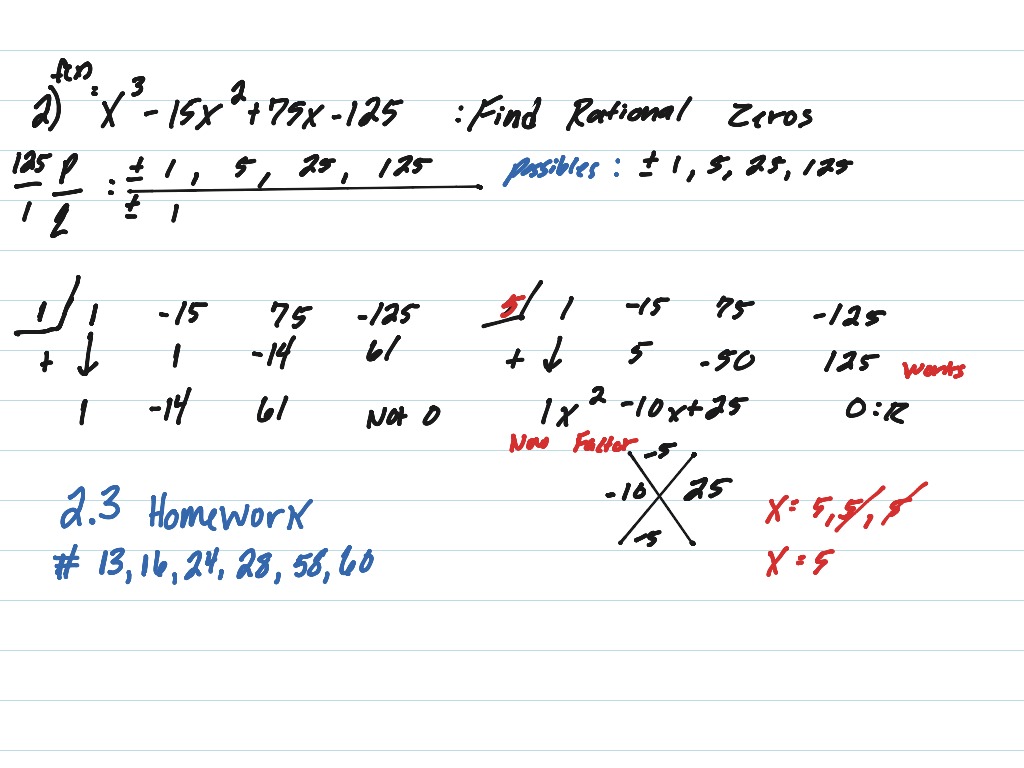 f(x)=
2) x³ - 15x² + 75x - 125 : Find Rational Zeros
125/1 p/q : ± 1, 5, 25, 125 / ± 1 possibles : ± 1, 5, 25, 125
1 1 -15 75 -125
+ ↓ 1 -14 61
1 -14 61 Not 0
5 1 -15 75 -125
+ ↓ 5 -50 125 works
1x² -10x+25 0:R
Now Factor
-5
-10 25
-5
x = 5, 5, 5
x = 5
2.3 Homework
# 13, 16, 24, 28, 58, 60